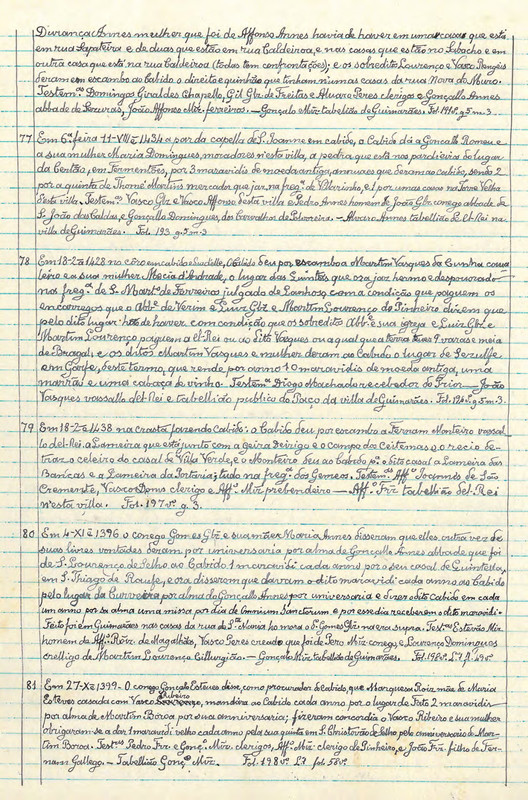 Durança Annes mulher que foi de Affonso Annes havia de haver em umas casas que está
em rua Sapateira e de duas que estão em rua Caldeiroa, e nas casas que estão no Sabacho e em
outra casa que está na rua Caldeiroa (todas tem confrontações); e os sobredito Lourenço e Vasco
deram em escambo ao Cabido o direito e quinhão que tinham numas casas da rua Nova do Muro.
Testem.as Domingos Giraldes Chapello, Gil Glz. de Freitas e Alvaro Peres clerigo e Gonçallo Annes
abbade de João Affonso Miz. ferreiros. — Gonçalo Miz. tabellião de Guimarães. Fol. 194v. g 5 m. 3.
77 Em 6.ª feira 11-VIII-E 1434 a par da capella de S. Joanne em cabido, o Cabido dá a Gonçallo Romeu e
a sua mulher Maria Domingues, moradores n'esta villa, a pedra que está nos pardieiros do lugar
da em Fermentões, por 3 maravidis de moeda antiga, annuaes que deram ao Cabido, sendo 2
por a quinta de Thomé Martins mercador que jaz na freg.ª de e 1 por umas casas na Torre Velha
desta villa. Testem.as Vasco Glz e Vasco Affonso desta villa e Pedro Annes homem de João Glz conego abbade de
S. João das Caldas, e Gonçallo Domingues, dos Carvalhos de — Alvaro Annes tabellião d'El-Rei na
villa de Guimarães. Fol. 193 g 5 m. 3
78 Em 18-2-E 1428 no côro em cabido e o Cabido deu por escambo a Martim Vasques da Cunha caval
leiro e a sua mulher Mecia d'Andrade, o lugar das Quintãs que ora jaz hermo e despovoado
na freg.ª de S. Mart.º de Ferreiros julgado de Lanhoso com a condição que paguem os
encarregos que o Abb.e de Verim e Luiz Glz e Martim Lourenço do Pinheiro dizem que
pelo dito lugar hão de haver, com condição que os sobredito Abb.e e sua igreja e Luiz Glz e
Martim Lourenço paguem a el-Rei ou ao dito Vasques ou a qual que a terra tiver 9 varas e meia
de Bragal; e os ditos Martim Vasques e mulher deram ao Cabido o lugar de Sezulfe
em Garfe, deste termo, que rende por anno 10 maravidis de moeda antiga, uma
marrãa e uma cabaça de vinho. Testem.as Diogo Machado recebedor do Prior — João
Vasques vassallo del-Rei e tabellião publico do Paço da villa de Guimarães. Fol. 124v. g 5 m. 3.
79 Em 18-2-E 1438 na crasta fazendo cabido: o Cabido deu por escambo a Fernam Monteiro vassal
lo del-Rei, a Lameira que está junto com a geira Deirigo e o campo das Ceitemas e o recio de
traz o celeiro do casal de Villa Verde; e o Monteiro deu ao cabido p.ª o dito casal a Lameira das
Barrcas e a Lameira da Portaria; tudo na freg.ª dos Gemeos. Testem.as Aff.º Joannis de São
Cremente, Vasco Doms clerigo e Aff.º Miz prebendeiro — Aff.º Frz tabellião del-Rei
n'esta villa. Fol. 197v. g. 3.
80 Em 4-XI-E 1396 o conego Gomes Glz e sua mãe Maria Annes disseram que elles outra vez de
suas livres vontades deram por universaria por alma de Gonçallo Annes abbade que foi
de S. Lourenço de Selho ao Cabido 1 maravidi cada anno por o seu casal de Quintella,
em S. Thiago de Ronfe, e ora disserem que davam o dito maravidi cada anno ao Cabido
pelo lugar da Curveira por alma do Gonçallo Annes por universaria e dizer o dito Cabido em cada
um anno por sa alma uma missa por dia de Omnium Sanctorum e por esse dia receberem o dito maravidi.
Feito foi em Guimarães nas casas da rua de S.ta Maria hu mora o d.º Gomes Glz nera supra. Test.as Estevão Miz
homem de Aff.º Roiz. de Magalhães, Vasco Peres creado que foi de Pero Miz conego, e Lourenço Domingues
crelligo de Martim Lourenço — Gonçalo Miz. tabellião de Guimarães. Fol. 198v. L.º 7 fl. 49v
81 Em 27-X-E 1399 - O conego Gonçalo Esteves disse, como procurador do Cabido, que Marquesa Roiz mãe de Maria
Esteves casada com Vasco Ribeiro, mandára ao Cabido cada anno por o lugar de Pinto 2 maravidis
por alma de Martim Boroa por sua anniversaria; fizeram concordia o Vasco Ribeiro e sua mulher
obrigaram-se a dar 1 maravidi velho cada anno pela sua quinta em S. Christovão de Selho pelo anniversario de Mar-
tim Boroa. Test.as Pedro Frz e Gonç.º Miz. clerigos, Aff.º Miz clerigo de Pinheiro, e João Frz filho de Fer-
nam Gallego. — Tabellião Gonç.º Miz. Fol. 198v. L.º 7 fol. 58v.